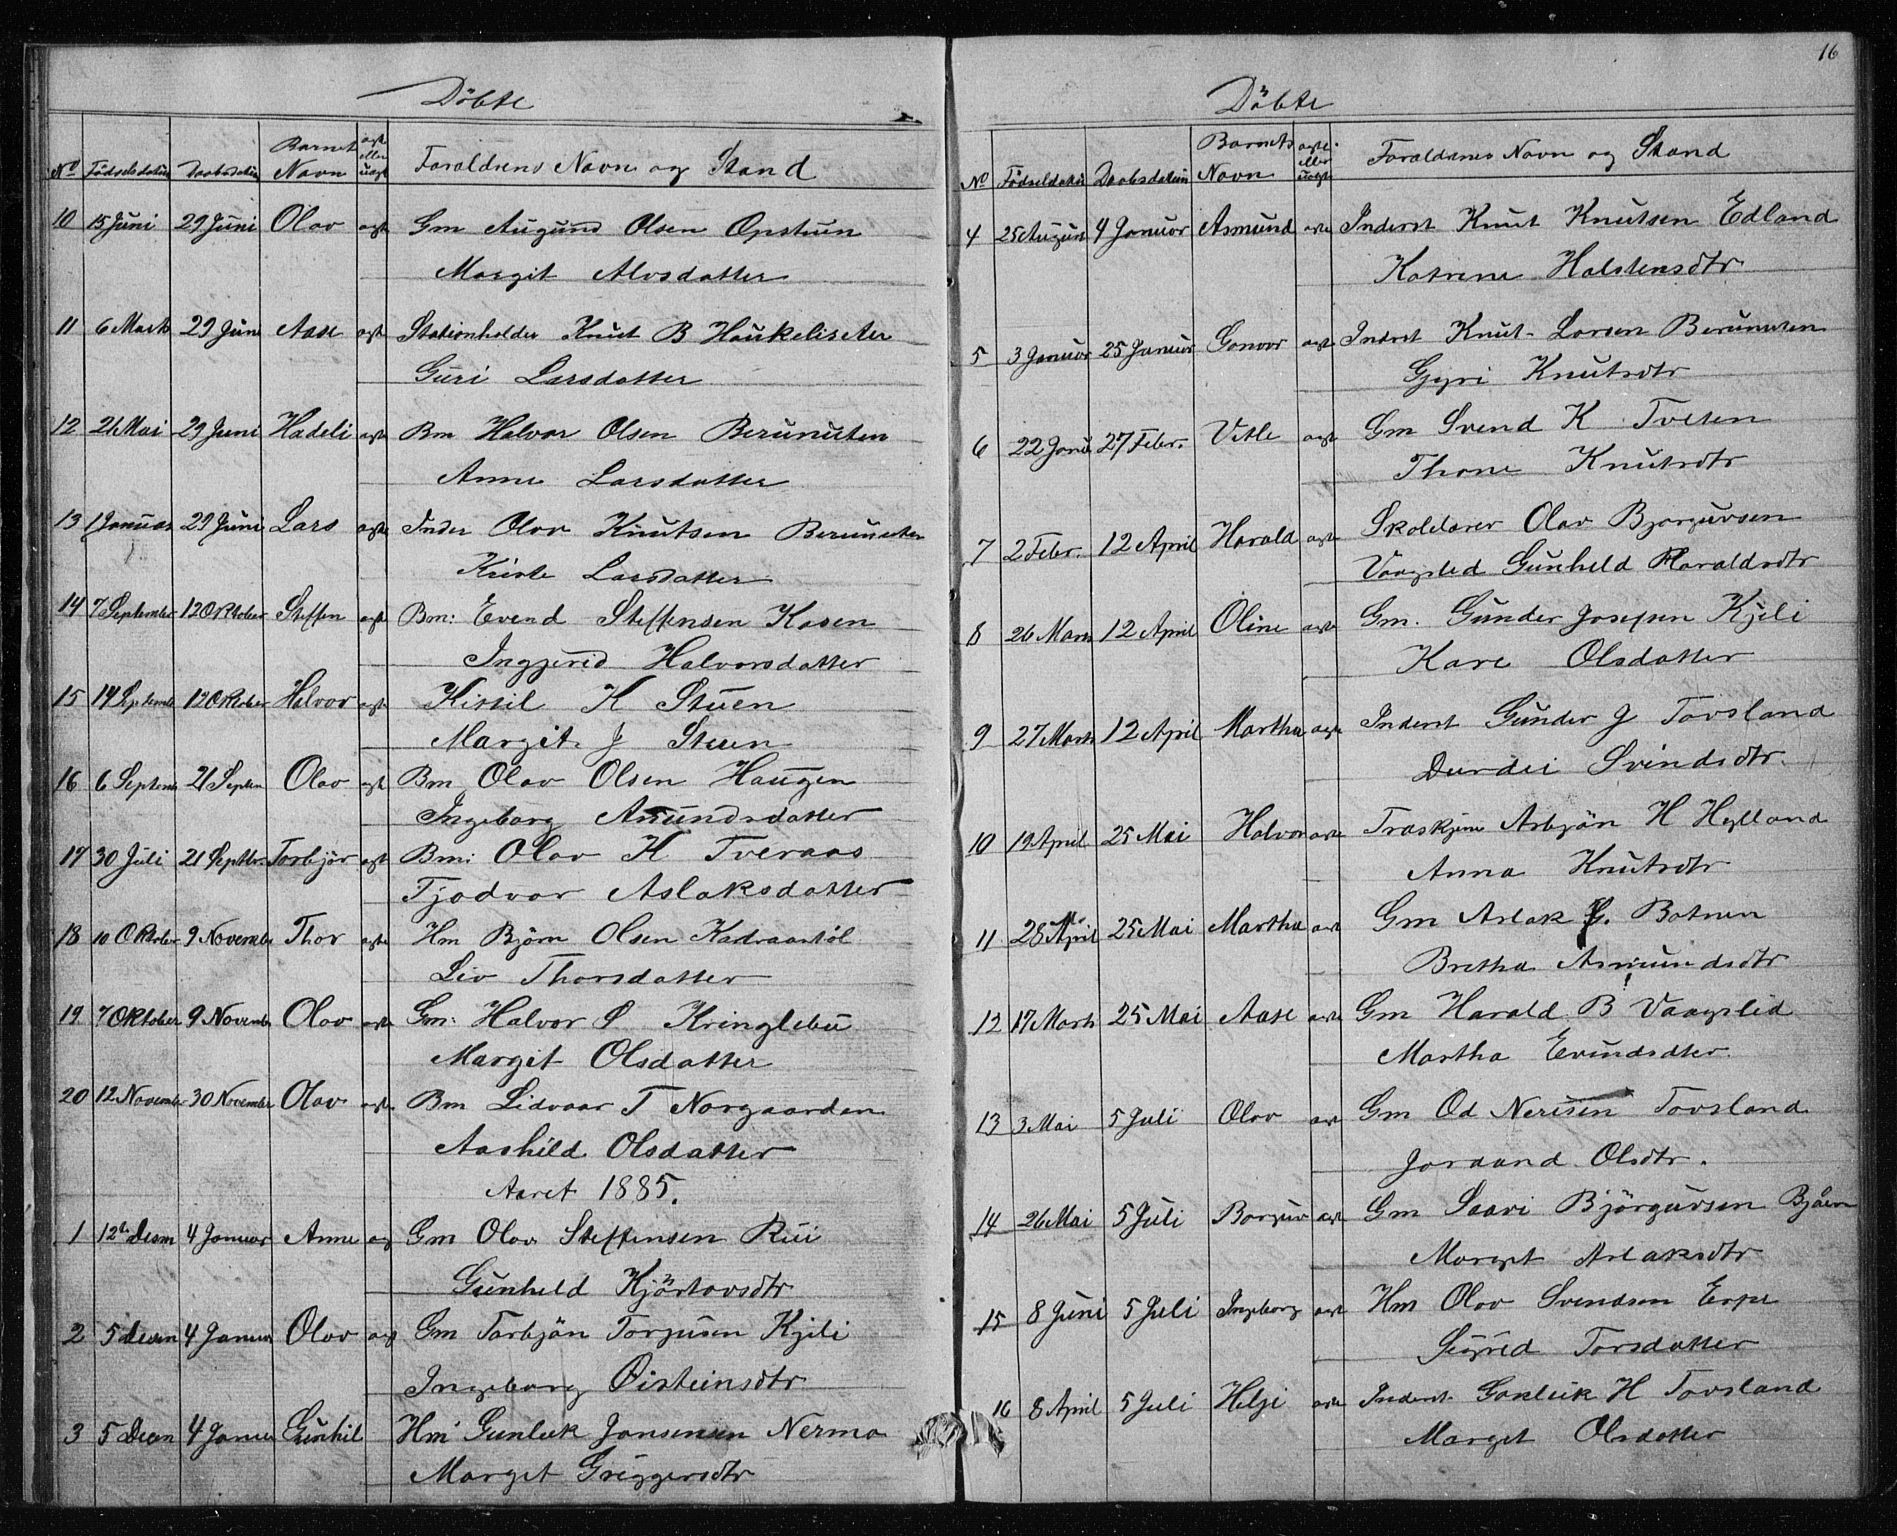 Döbte
No Födselsdatum Daabsdatum Barnets Navn ægte eller uægt Forældrens Navn og Stand
10 15 Juni 29 Juni Olav ægt Gm Augund Olsen Opstuen
Margit Alvsdatter
11 6 Marts 29 Juni Aase ægt Stationholder Knut B Haukeliseter
Guri Larsdatter
12 26 Mai 29 Juni Hadeli ægt Bm Halvor Olsen Berunuten
Anne Larsdatter
13 1 Januar 29 Juni Lars ægte Inder Olav Knutsen Berunuten
Kirste Larsdatter
14 7 September 12 Oktober Steffen ægt Bm: Evend Steffensen Kosen
Ingjerid Halvorsdatter
15 14 Septemb 12 Oktober Halvor ægt Kittil K Stuen
Margit J Stuen
16 6 Septem 21 Septem Olav ægt Bm Olav Olsen Haugen
Ingeborg Amundsdatter
17 30 Juli 21 Septbr Torbjør ægt Bm: Olav K Tveraas
Tjodvor Aslaksdatter
18 10 Oktober 9 Novembr Thor ægte Hm Björn Olsen Kadraastöl
Liv Thorsdatter
19 7 Oktober 9 Novemb Olav ægte Gm: Halvor S Kringlebu
Margit Olsdatter
20 12 November 30 November Olav ægte Bm Lidvaar T Norgaarden
Aashild Olsdatter
Aaret 1885.
1 12te Desm 4 Januar Anne æg Gm Olav Steffensen Rui
Gunheld Kjörtovsdtr
2 5 Desem 4 Januar Olav ægt Gm Torbjön Torgusen Kjeli
Ingeborg Öisteinsdtr
3 5 Decm 4 Januar Gunhil Hm Gunleik Jonsensen Nermo
Marget Greggersdtr
16
Döbte
No Födseldatum Daabsdatum Barnets Navn ægte eller uægte Forældrenes Navn og Stand
4 25 August 4 Januar Asmund ægte Inderst Knut Knutsen Edland
Katrine Halstensdtr
5 3 Januar 25 Januar Gonvor ægte Inderst Knut Larsen Berunuten
Gyri Knutsdtr
6 22 Janu 27 Febr. Vetle ægt Gm Svend K Tveten
Thone Knutsdtr
7 2 Febr. 12 April Harald ægt Skolelærer Olav Bjorguvsen
Vaagsled Gunheld Haraldsdtr
8 26 Mars 12 April Oline ægte Gm. Gunder Josepsen Kjeli
Kare Olsdatter
9 27 Marts 12 April Martha ægte Inderst Gunder J Tovsland
Durdei Svindsdtr.
10 19 April 25 Mai Halvor ægte Træskjær Asbjön H Hylland
Anna Knutsdtr
11 28 April 25 Mai Martha ægt Gm Aslak G. Botnen
Bretha Asmundsdtr
12 17 Marts 25 Mai Aase ægte Gm Harald B Vaagsleid
Martha Evindsdter
13 3 Mai 5 Juli Olav ægt Gm Od Nerisen Tovsland
Joraand Olsdtr.
14 26 Mai 5 Juli Borguv ægt Gm Saavi Björguvsen Bjåen
Marget Aslaksdtr
15 8 Juni 5 Juli Ingeborg ægt Hm Olav Svendsen Erpe
Sigrid Torsdatter
16 8 April 5 Juli Helje ægte Inderst Gonleik H Tovsland
Marget Olsdatter